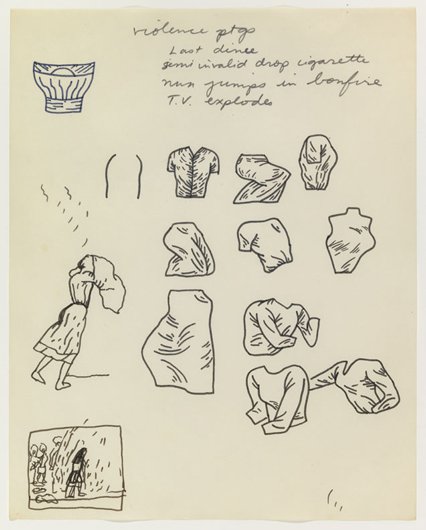 violence ptgs
Last dinee
semi invalid drop cigarette
nun jumps in bonfire
T.V. explodes